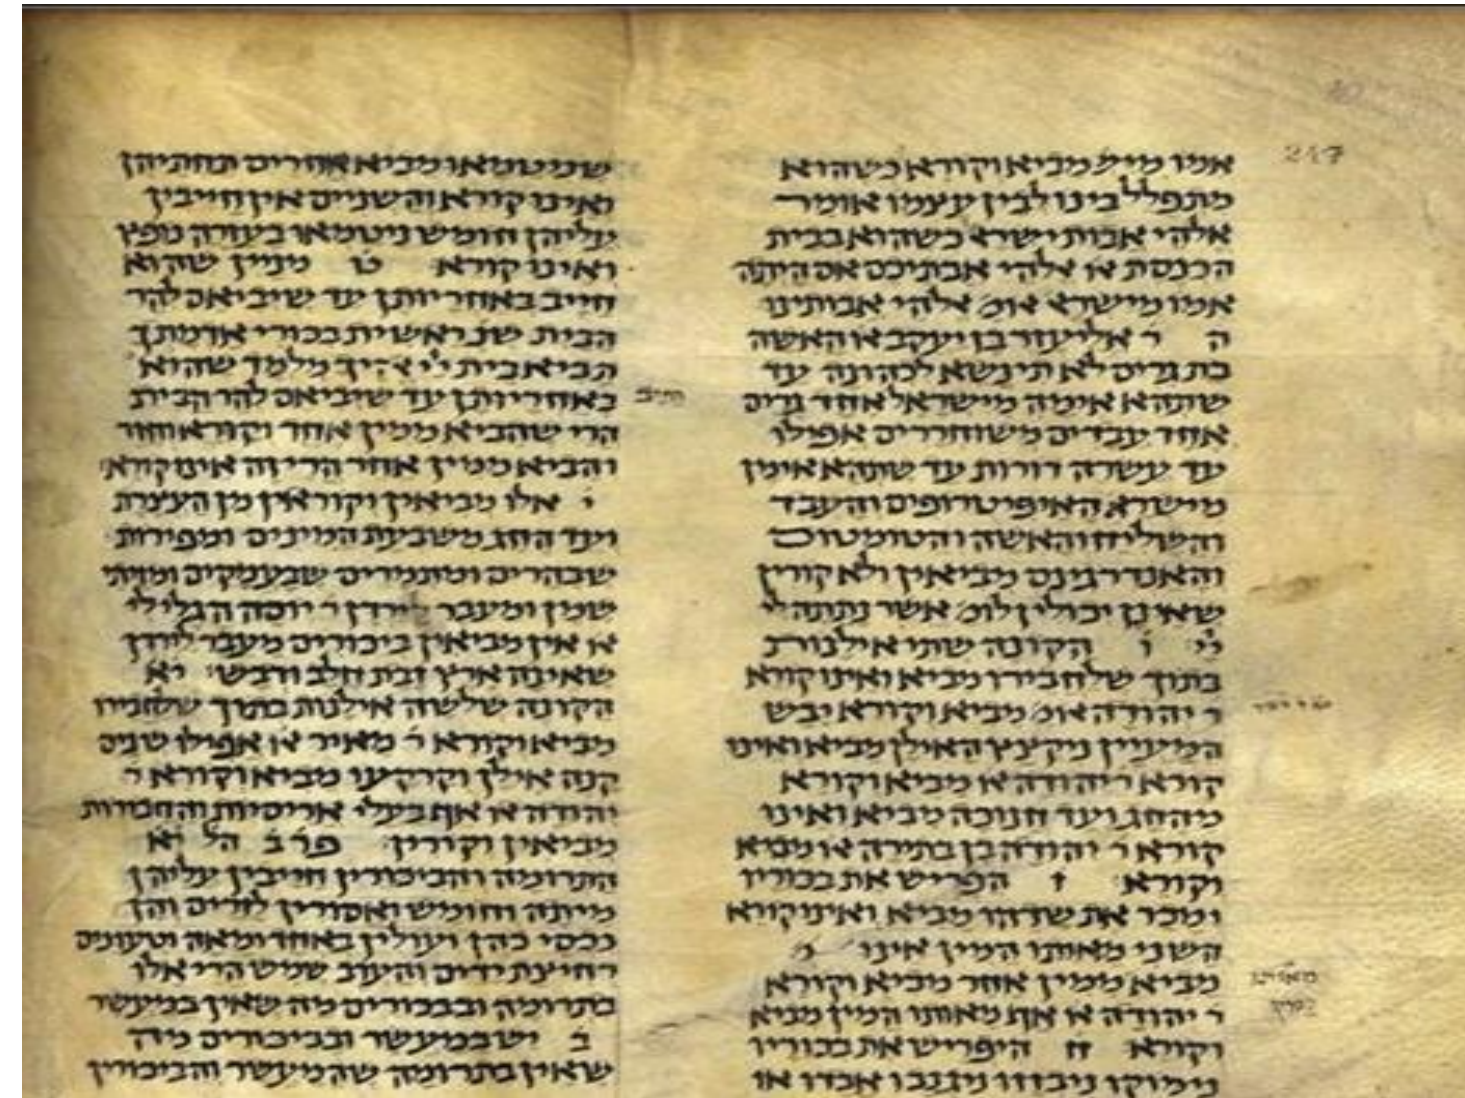 247
אמו מיש׳ מביא וקורא כשהוא
מתפלל בינו לבין עצמו אומר
אלהי אבות ישרא׳ כשהוא בבית
הכנסת או׳ אלהי אבתיכם אם היתה
אמו מישרא׳ אומ׳ אלהי אבותינו
ה ר אליעזר בן יעקב או׳ האשה
בת גרים לא תינשא לכהונה עד
שתהא אימה מישראל אחד גרים
אחד עבדים משוחררים אפילו
עד עשרה דורות עד שתהא אימן
מישרא׳ האיפיטרופים והעבד
והשליח והאשה והטומטום
והאנדרגינס מביאין ולא קורין
שאינן יכולין לומ׳ אשר נתתה לי
יי׳ ו הקונה שתי אילנות
בתוך שלחבירו מביא ואינו קורא
ר יהודה אומ׳ מביא וקורא יבש
המיעיין ניקצץ האילן מביא ואינו
קורא ר יהודה או׳ מביא וקורא
מהחג ועד חנוכה מביא ואינו
קורא ר יהודה בן בתירה או׳ מביא
וקורא ז הפריש את בכוריו
ומכר את שדהו מביא ואינו קורא
השני מאותו המין אינו
מביא ממין אחר מביא וקורא
ר יהודה או׳ אף מאותו המין מביא
וקורא ח היפריש את בכוריו
נימוקו ניבזזו ניגנבו אבדו או
שניטמאו מביא אחרים תחתיהן
ואינו קורא והשניים אין חייבין
עליהן חומש ניטמאו בעזרה נופץ
ואינו קורא ט מניין שהוא
חייב באחריותן עד שיביאם להר
הבית שנ׳ ראשית בכורי אדמתך
תביא בית יי׳ אהיך מלמד שהוא
באחריותן עד שיביאם להר הבית
הרי שהביא ממין אחד וקורא וחזר
והביא ממין אחר הרי זה אינו קורא
י אלו מביאין וקוראין מן העצרת
ועד החג משבעת המינים ומפירות
שבהרים ומתמרים שבעמקים ומזיתי
שמן ומעבר לירדן ר יוסה הגלילי
או׳ אין מביאין ביכורים מעבר לירדן
שאינה ארץ זבת חלב ודבש יא
הקונה שלשה אילנות בתוך שלחבירו
מביא וקורא ר מאיר או׳ אפילו שנים
קנה אילן וקרקעו מביא וקורא ר
יהודה או׳ אף בעלי אריסיות והחכורות
מביאין וקורין פר ב הל יא
התרומה והביכורין חייבין עליהן
מיתה וחומש ואסורין לזרים והן
נכסי כהן ועולין באחד ומאה וטעונים
רחיצת ידים והערב שמש הרי אלו
בתרומה ובבכורים מה שאין במעשר
ב יש במעשר ובביכורים מה
שאין בתרומה שהמעשר והביכורין